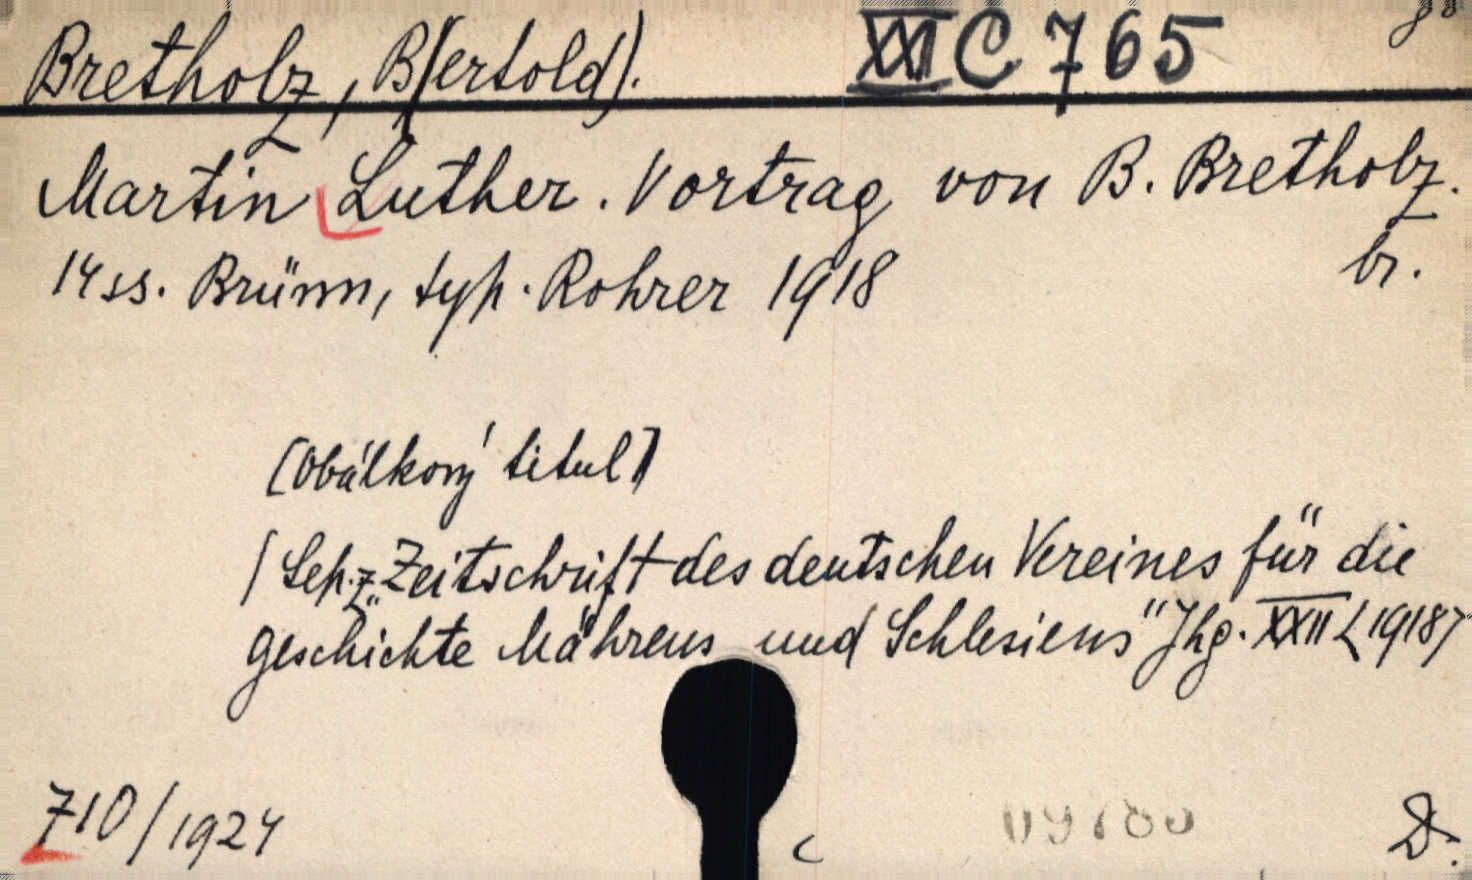 Bretholz, B(ertold). XXI C 765 8°
Martin Luther. Vortrag von B. Bretholz.
14 ss. Brünn, typ. Rohrer 1918 br.
[Obálkový titul]
/Sep. z „Zeitschrift des deutschen Vereines für die
Geschichte Mährens und Schlesiens" Jhg. XXII <1918>
710/1924 D.